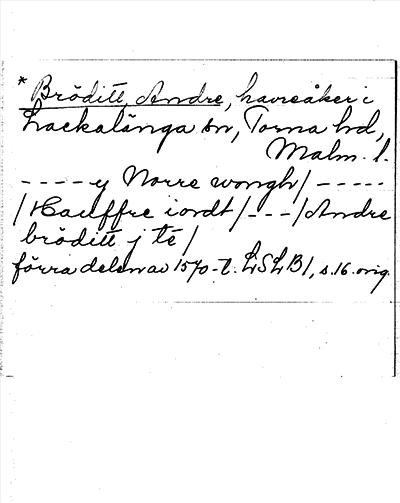 * Bröditt, Andre, havreåker i
Lackalänga sn, Torna hd,
Malm. l.
---- y Norre wongh/ -----
/Hauffre iordt/---/Andre
bröditt j tē/
förra delen av 1570-t. LSLB1, s.16. orig.